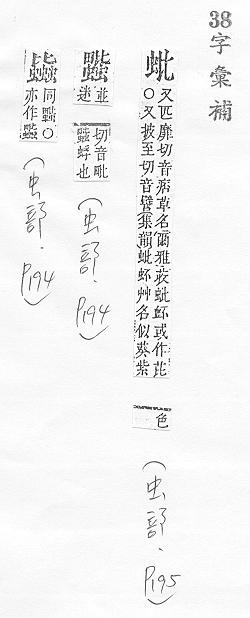 38字彙補
蚍
又匹靡切音痞草名爾雅荍蚍衃或作芘
○又披至切音譬集韻蚍衃艸名似葵紫
色
(虫部.P195)
並
迷
切音毗
蜉也
(虫部.P194)
同○
亦作
(虫部.P194)